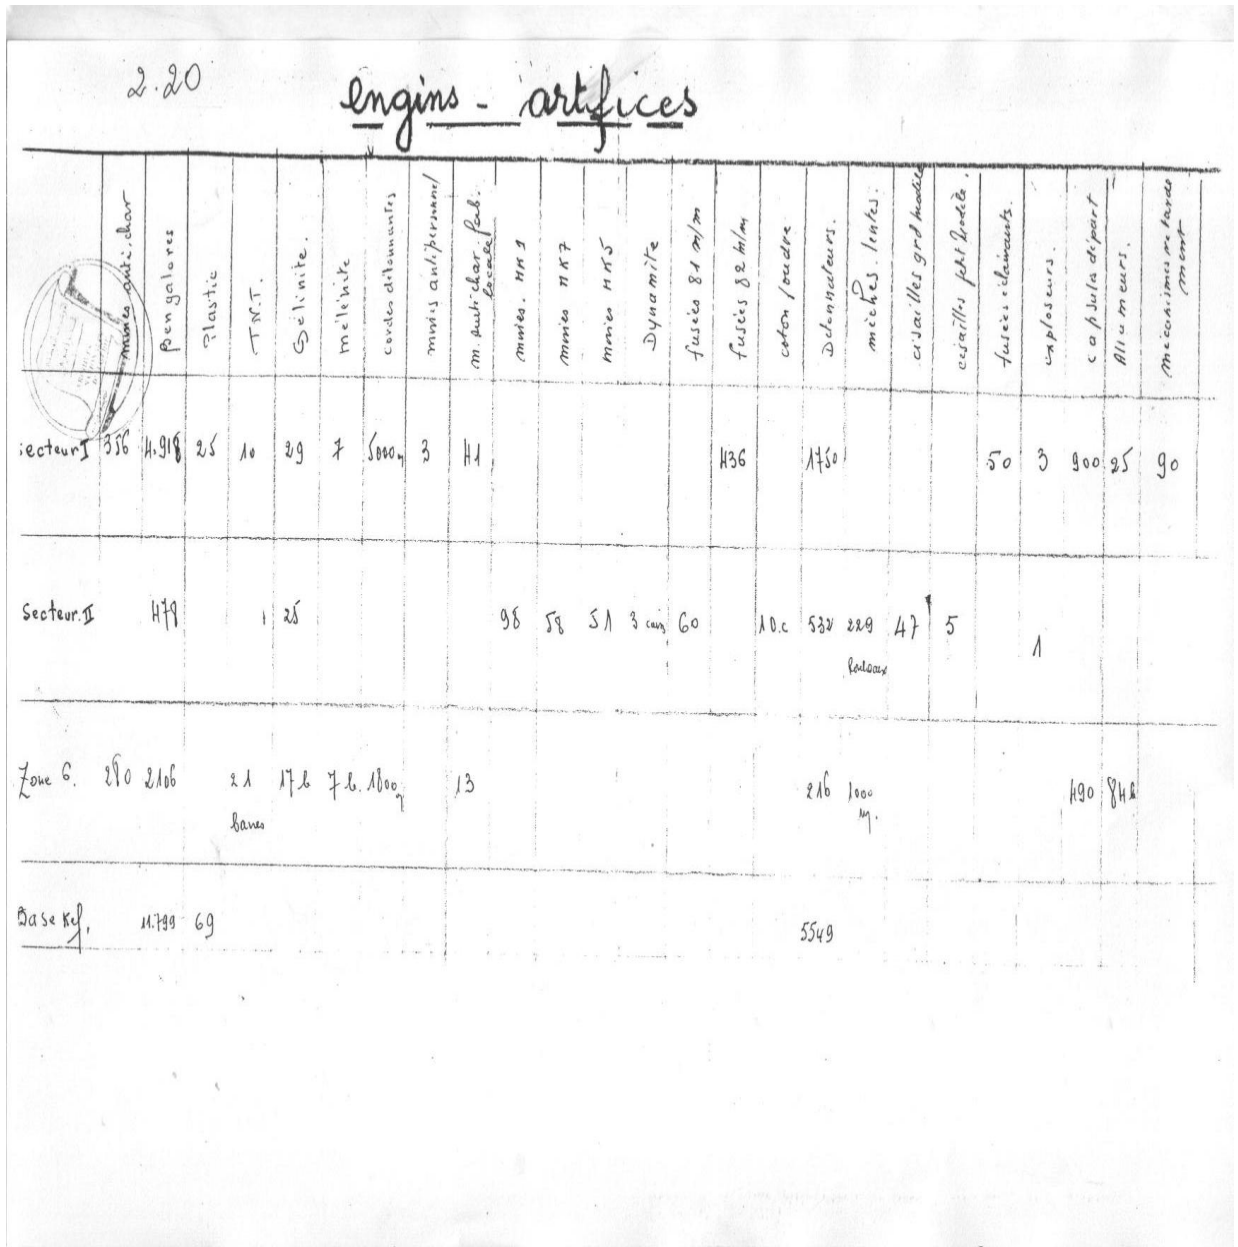 2.20
engins - artifices
mines anti.char Bengalores Plastic T.N.T. Gélinite. mélénite cordes détonnantes mines antipersonnel m. anti char fab. locale mines. MK1 mines MK7 mines MK5 Dynamite fusées 81 m/m fusées 82 m/m coton poudre Détonnateurs. mèches lentes. cisailles grd modèle cisailles petit modèle. fusées éclairants. exploseurs. capsules départ Allumeurs. mécanismes retardement
Secteur I 356 4.918 25 10 29 7 5000m 3 41 436 1750 50 3 900 25 90
Secteur. II 478 25 98 58 51 3 60 10.c 532 229 47 5 1
Rouleaux
Zone 6. 280 2106 21 17b 7b. 1800m 13 216 1000 490 84b
barres m.
Base Kef. 11.799 69 5549